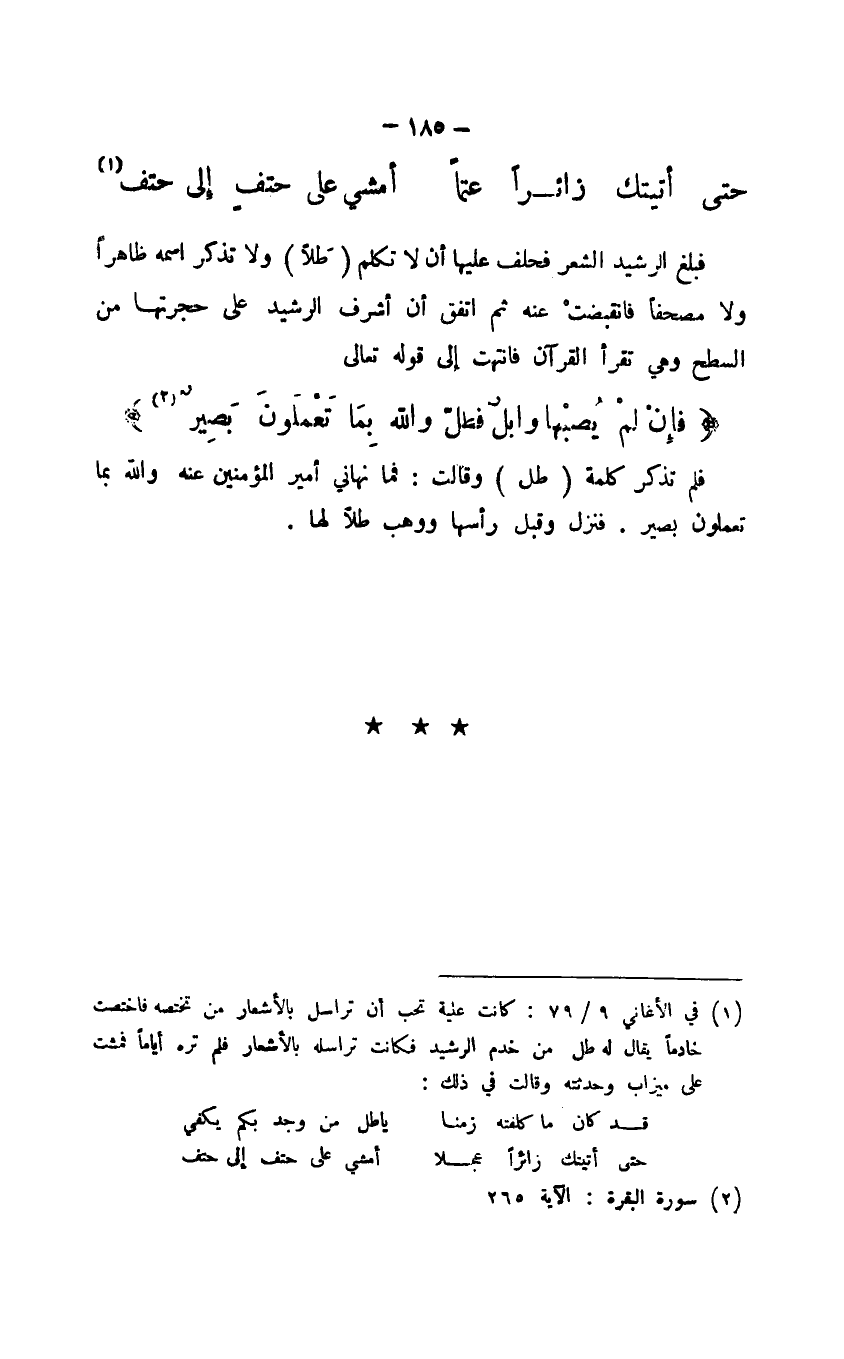 – ١٨٥ –
حتى أتيتك زائـــراً عتباً أمشي على حتفٍ إلى حتف(١)
فبلغ الرشيد الشعر فحلف عليها أن لا تكلم ( طَلاً ) ولا تذكر اسمه ظاهراً
ولا مصحفاً فانقبضتْ عنه ثم اتفق أن أشرف الرشيد على حجرتهـا من
السطح وهي تقرأ القرآن فانتهت إلى قوله تعالى
﴿ فإِنْ لمْ يُصبْها وابلٌ فطلّ والله بِمَا تَعْمَلونَ بَصِير ﴾(٢)
فلم تذكر كلمة ( طل ) وقالت : فما نهاني أمير المؤمنين عنه والله بما
تعملون بصير . فنزل وقبل رأسها ووهب طلاً لها .
★ ★ ★
(١) في الأغاني ٩ / ٧٩ : كانت علية تحب أن تراسل بالأشعار من تختصه فاختصت
خادماً يقال له طل من خدم الرشيد فكانت تراسله بالأشعار فلم تره أياماً فمشت
على ميزاب وحدثته وقالت في ذلك :
قـــد كان ما كلفته زمنـا ياطل من وجد بكم يكفي
حتى أتيتك زائراً عجـــلا أمشي على حتف إلى حتف
(٢) سورة البقرة : الآية ٢٦٥